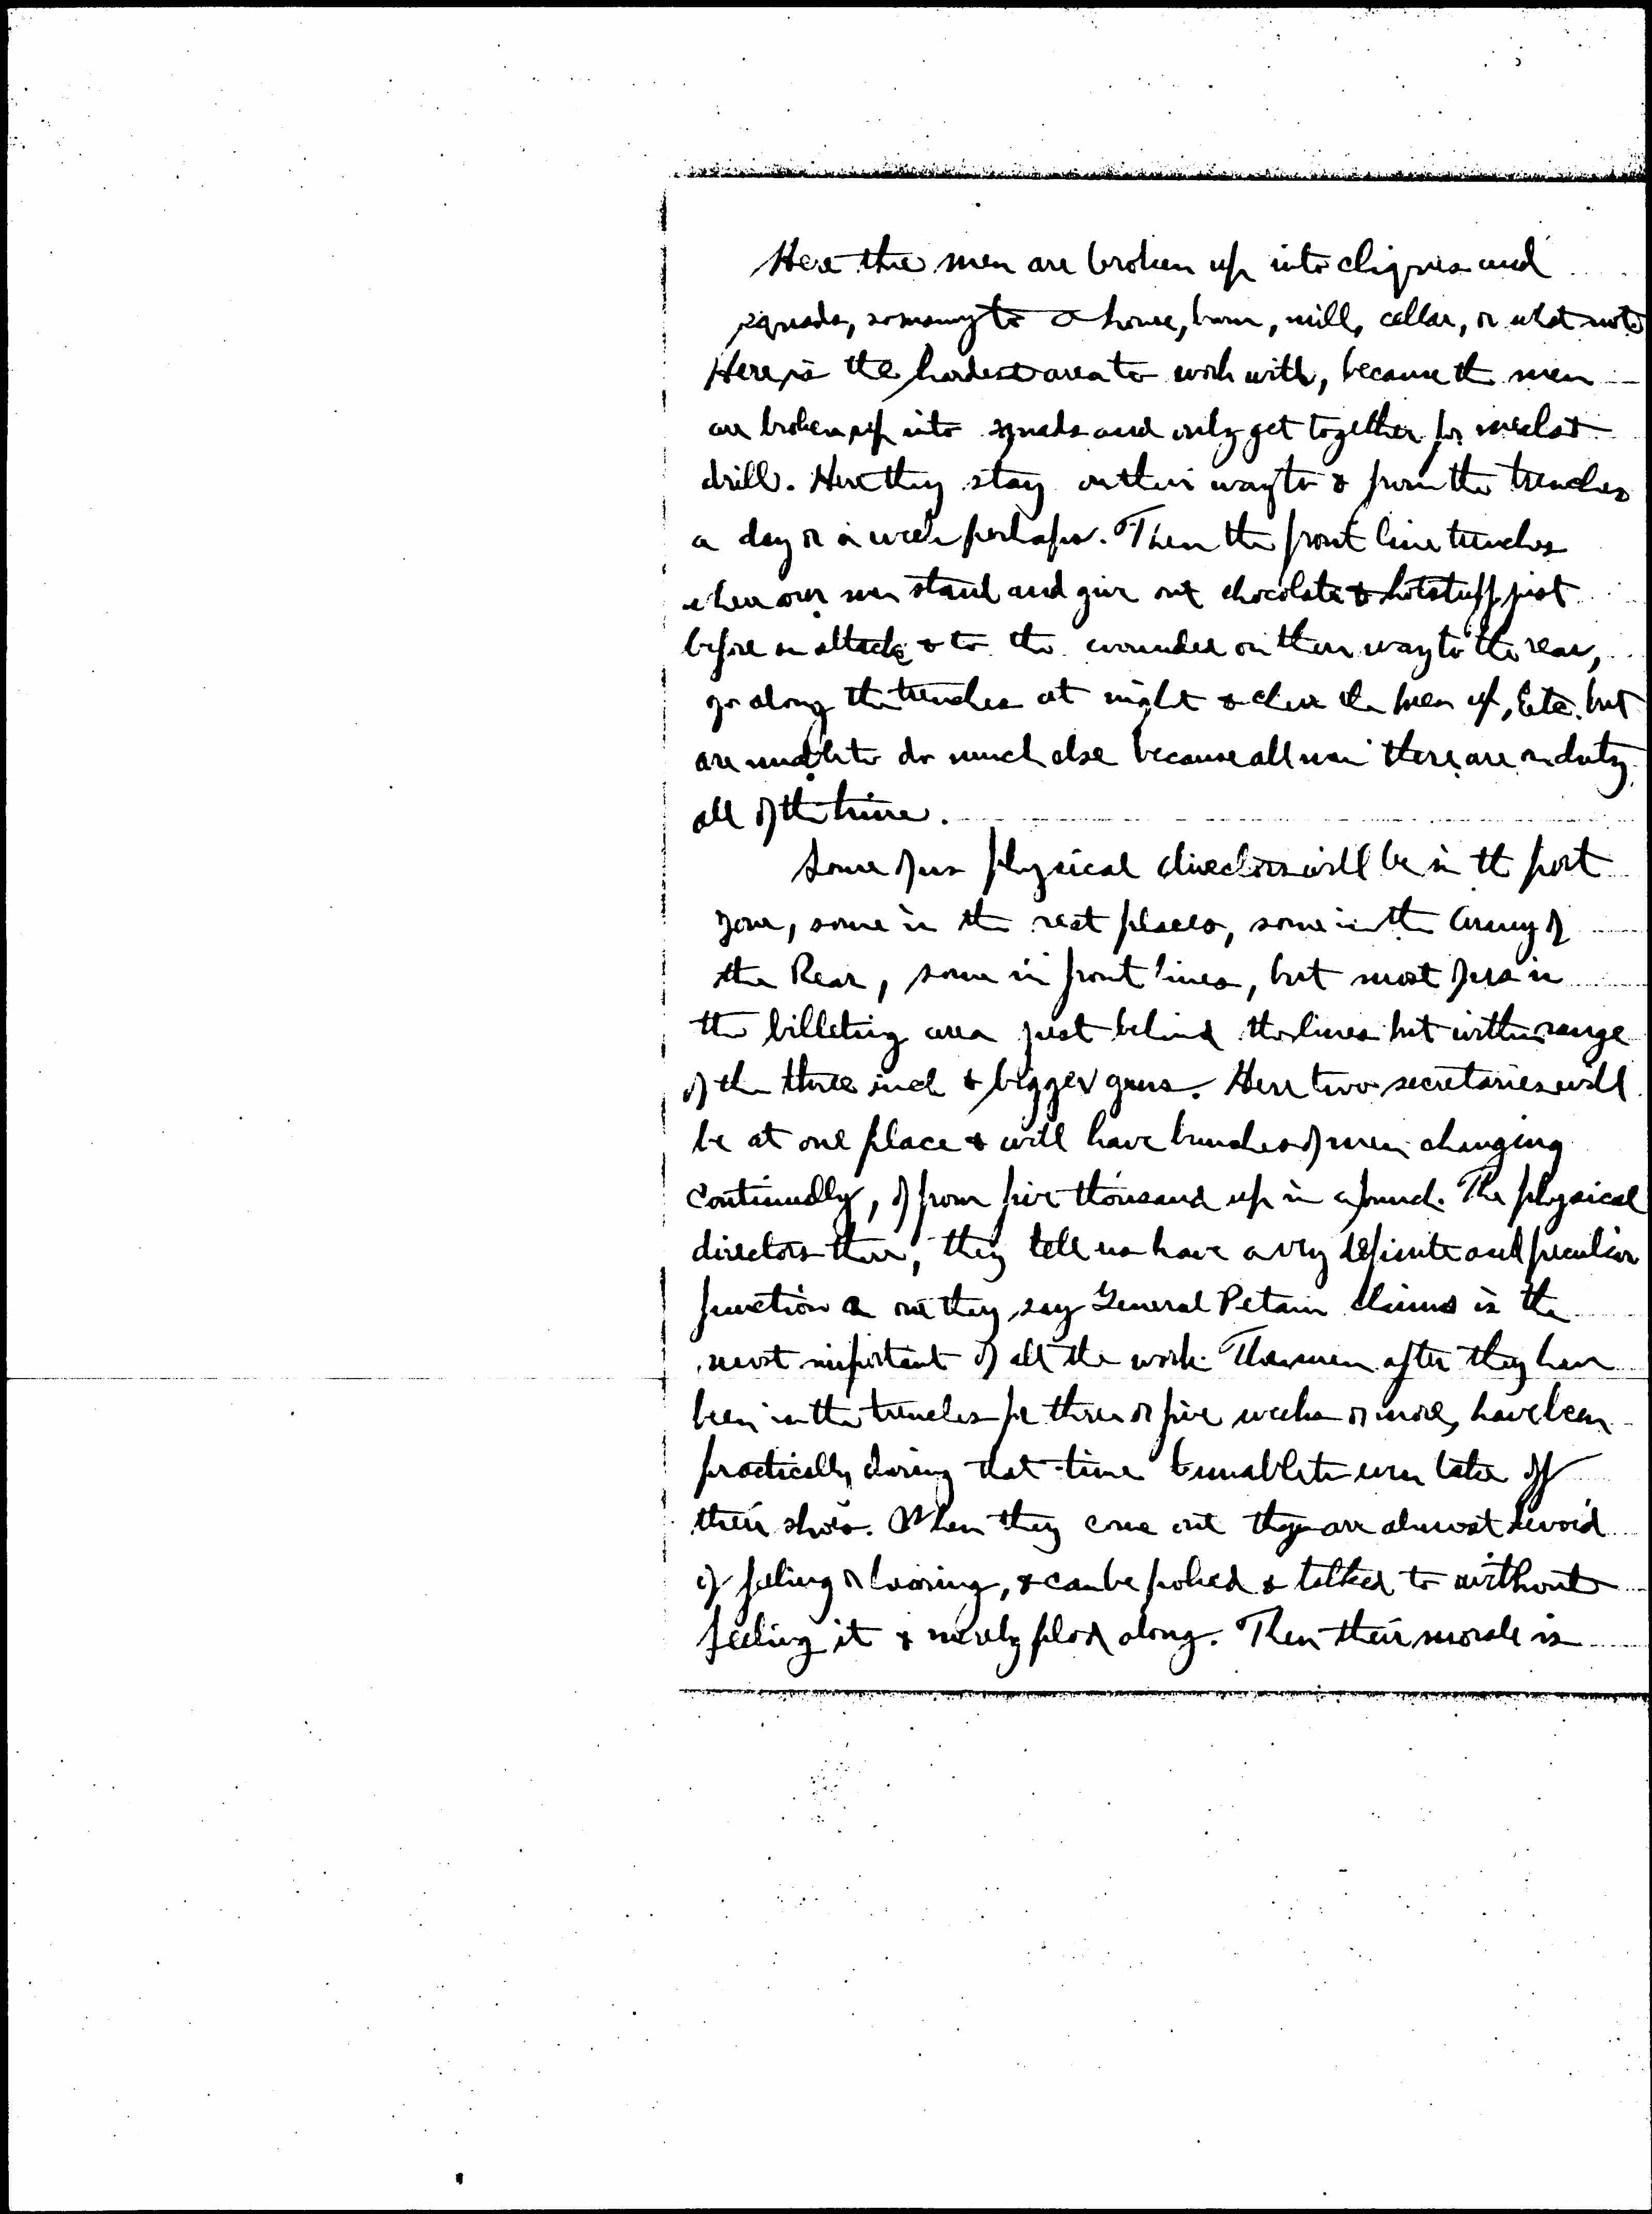 Here the men are broken up into cliques and
squads, so many to a house, barn, mill, cellar, or what not
Here is the hardest area to work with, because the men
are broken up into squads and only get together for meals &
drill. Here they stay on their way to & from the trenches
a day or a week perhaps. Then the front line trenches
where our men stand and give out chocolate & hot stuff just
before an attack & to the wounded on their way to the rear,
go along the trenches at night & cheer the men up, etc. but
are unable to do much else because all men there are on duty
all of the time.
Some of us physical directors will be in the port
zone, some in the rest places, some in the Army of
the Rear, some in front lines, but most of us in
the billeting area just behind the lines but within range
of the three inch & bigger guns. Here two secretaries will
be at one place & will have bunches of men changing
continually, of from five thousand up in a bunch. The physical
directors there, they tell us have a very definite and peculiar
function & one they say General Petain claims is the
most important of all the work. These men after they have
been in the trenches for three or five weeks or more, have been
practically during that time unable to even take off
their shoes. When they come out they are almost devoid
of feeling or hearing, & can be poked & talked to without
feeling it & merely plod along. Then their morale is